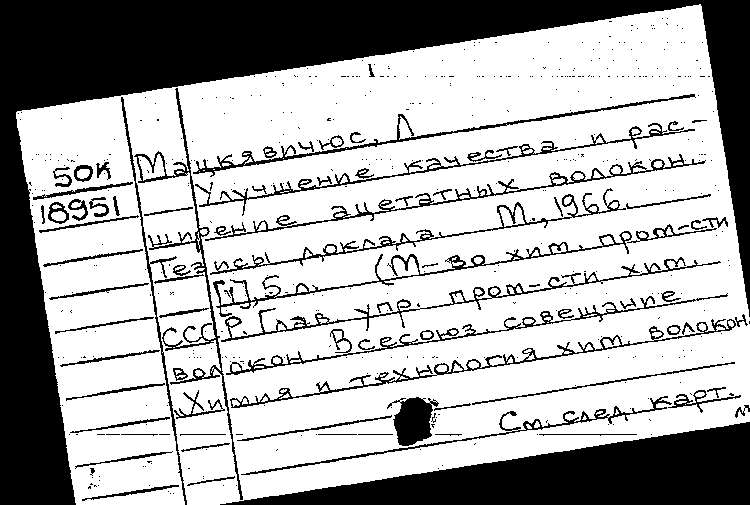 Мацкявичюс, Л
50К
Улучшение качества и рас-
18951
ширение ацетатных волокон.
Тезисы доклада. М., 1966.
[1], 5 л. (М-во хим. пром-сти
СССР. Глав. упр. пром-сти хим.
волокон. Всесоюз. совещание
"Химия и технология хим. волокон
См. след. карт.